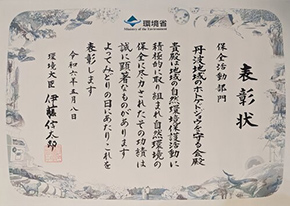 環境省
Ministry of the Environment
表彰状
保全活動部門
丹波地域のホトケドジョウを守る会殿
貴殿は地域の自然環境保護活動に
積極的に取り組まれ自然環境の
保全に尽力されたその功績は
誠に顕著なものがあります
よってみどりの日にあたりこれを
表彰します
令和六年五月 日
環境大臣 伊藤信太郎